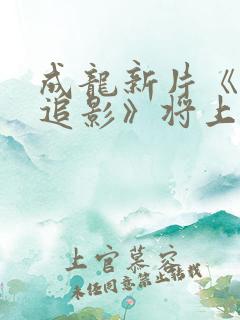 成龍新片《
追影》将上
上官慕容
未经同意禁止转载